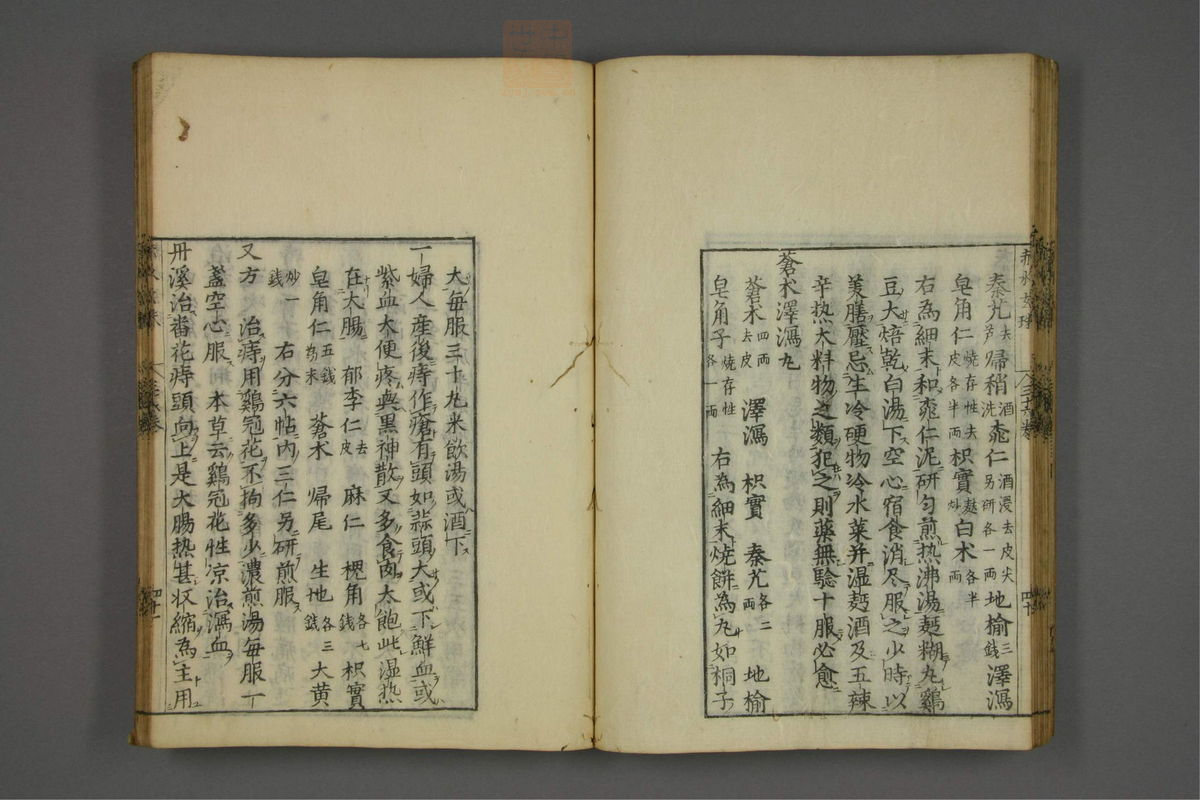 秦艽去芦歸稍酒洗桃仁酒浸去皮尖另研各一両地榆三錢澤瀉
皂角仁燒存性去皮各半両枳實麸炒白术各半両
右為細末和桃仁泥研匀煎热沸湯麺糊丸鷄
豆大焙乾白湯下空心宿食消尽服之少時以
美膳壓忌生冷硬物冷水菜并湿麪酒及五辣
辛热大料物之類犯之則薬無驗十服必愈
蒼术澤瀉丸
蒼术四両去皮 澤瀉 枳實 秦艽各二両 地榆
皂角子燒存性各一両 右為細末燒餅為丸如桐子
大毎服三十丸米飲湯或酒下
一婦人産後痔作瘡有頭如蒜頭大或下鮮血或
紫血大便疼與黒神散又多食肉太飽此湿热
在大腸 郁李仁去皮 麻仁 槐角各七錢 枳實
皂角仁五錢為末 蒼术 歸尾 生地各三錢 大黄
炒一錢 右分六帖内三仁另研煎服
又方 治痔用鷄冠花不拘多少濃煎湯毎服一
盞空心服 本草云鷄冠花性凉治瀉血
丹溪治畨花痔頭向上是大腸热甚収縮為主用